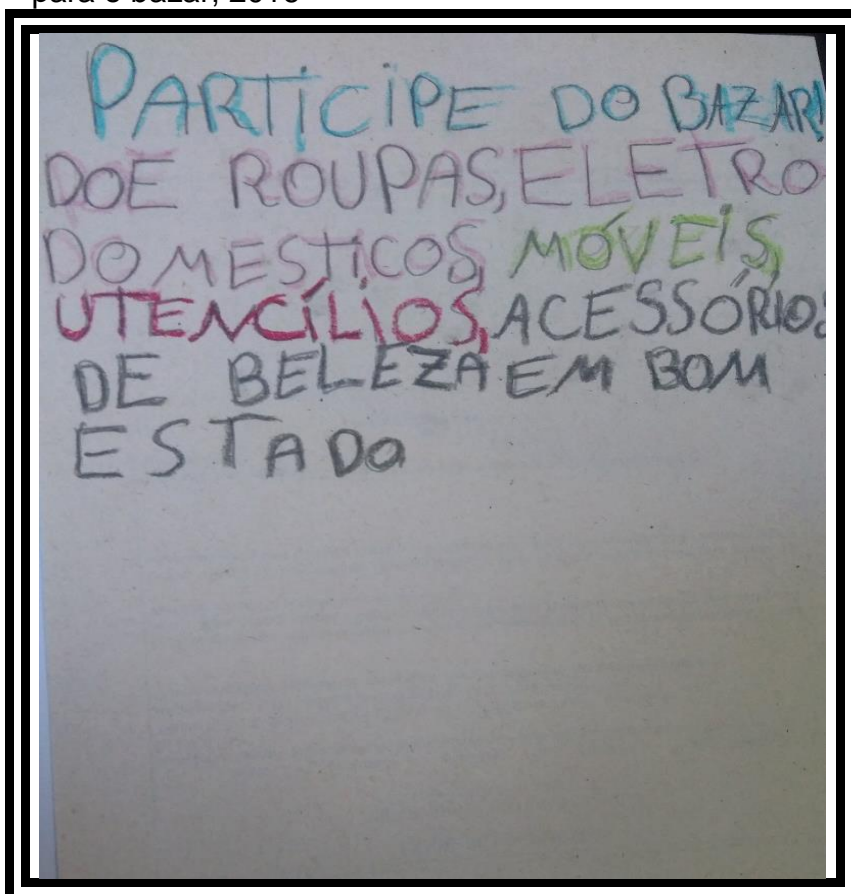 PARTICIPE DO BAZAR!
DOE ROUPAS, ELETRO
DOMESTICOS, MÓVEIS,
UTENCÍLIOS, ACESSÓRIOS
DE BELEZA EM BOM
ESTADO